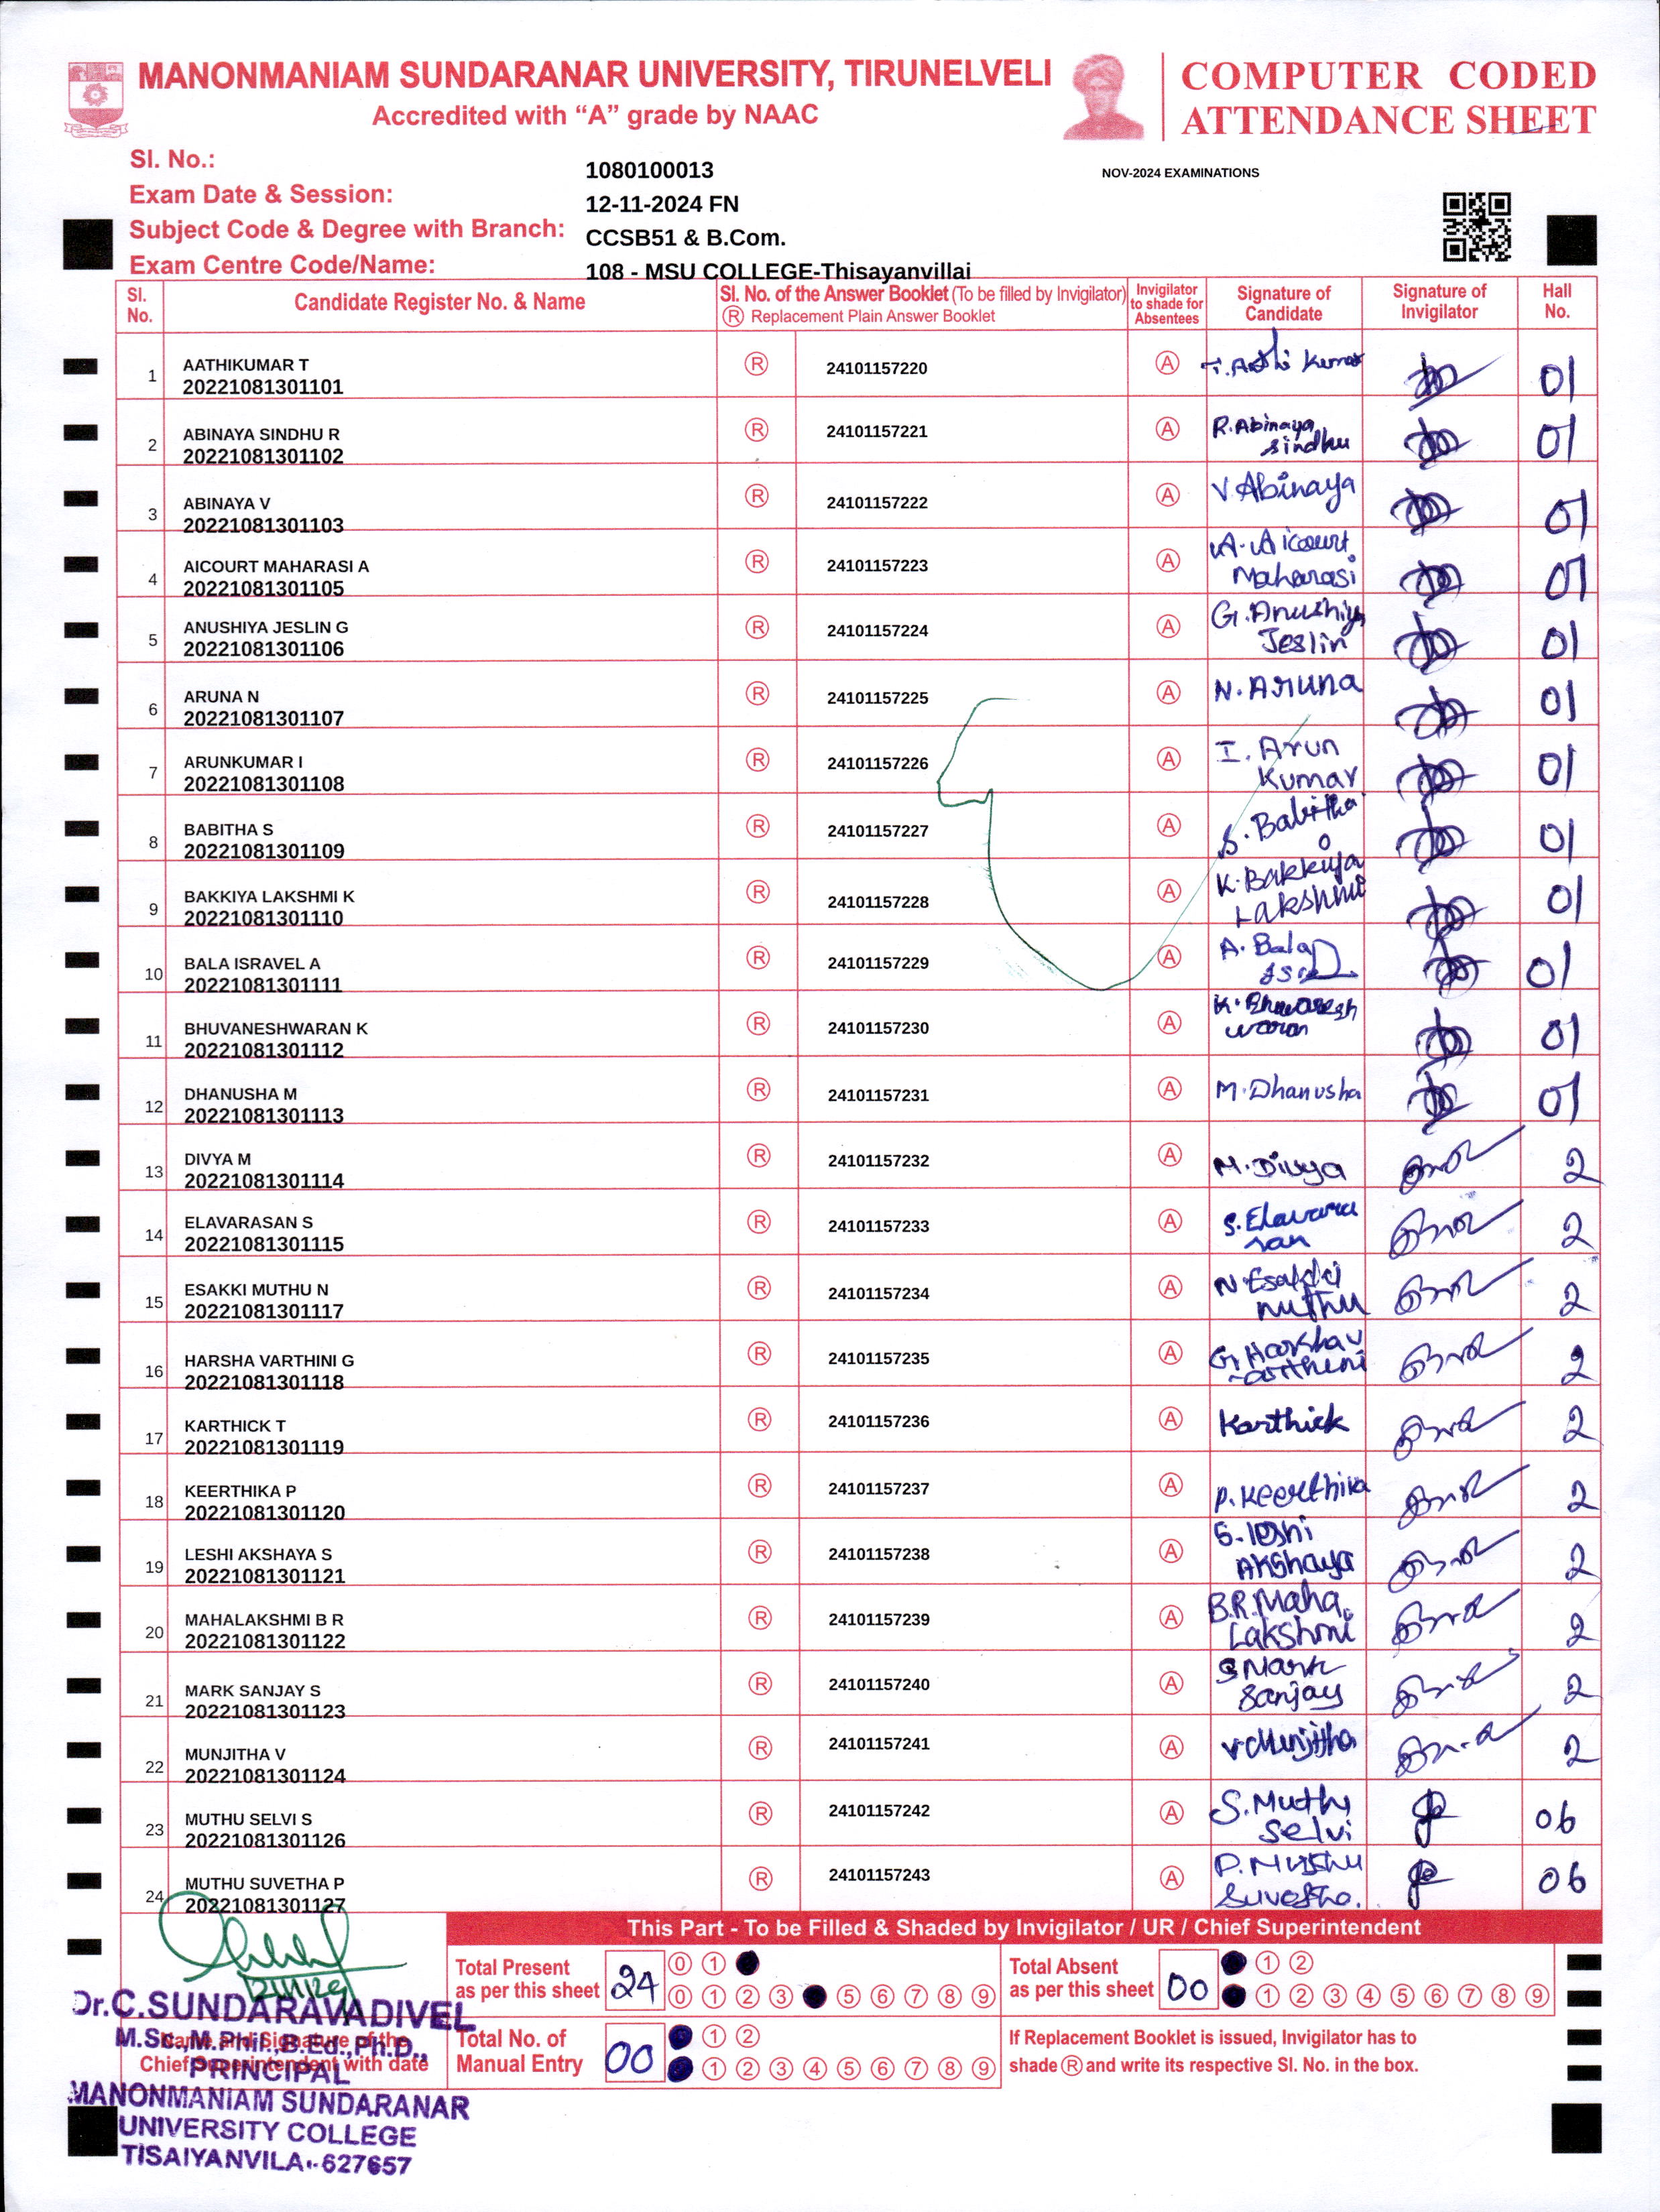 MANONMANIAM SUNDARANAR UNIVERSITY, TIRUNELVELI
Accredited with “A” grade by NAAC
COMPUTER CODED
ATTENDANCE SHEET
Sl. No.: 1080100013
NOV-2024 EXAMINATIONS
Exam Date & Session: 12-11-2024 FN
Subject Code & Degree with Branch: CCSB51 & B.Com.
Exam Centre Code/Name: 108 - MSU COLLEGE-Thisayanvillai
Sl. No. Candidate Register No. & Name Sl. No. of the Answer Booklet (To be filled by Invigilator) Ⓡ Replacement Plain Answer Booklet Invigilator to shade for Absentees Signature of Candidate Signature of Invigilator Hall No.
1 AATHIKUMAR T Ⓡ 24101157220 Ⓐ T. Athi Kumar 01
20221081301101
2 ABINAYA SINDHU R Ⓡ 24101157221 Ⓐ R. Abinaya sindhu 01
20221081301102
3 ABINAYA V Ⓡ 24101157222 Ⓐ V. Abinaya 01
20221081301103
4 AICOURT MAHARASI A Ⓡ 24101157223 Ⓐ A. Aicourt Maharasi 01
20221081301105
5 ANUSHIYA JESLIN G Ⓡ 24101157224 Ⓐ G. Anushiya Jeslin 01
20221081301106
6 ARUNA N Ⓡ 24101157225 Ⓐ N. Aruna 01
20221081301107
7 ARUNKUMAR I Ⓡ 24101157226 Ⓐ I. Arun Kumar 01
20221081301108
8 BABITHA S Ⓡ 24101157227 Ⓐ S. Babitha 01
20221081301109
9 BAKKIYA LAKSHMI K Ⓡ 24101157228 Ⓐ K. Bakkiya Lakshmi 01
20221081301110
10 BALA ISRAVEL A Ⓡ 24101157229 Ⓐ A. Bala 01
20221081301111
11 BHUVANESHWARAN K Ⓡ 24101157230 Ⓐ K. waran 01
20221081301112
12 DHANUSHA M Ⓡ 24101157231 Ⓐ M. Dhanusha 01
20221081301113
13 DIVYA M Ⓡ 24101157232 Ⓐ M. Divya 2
20221081301114
14 ELAVARASAN S Ⓡ 24101157233 Ⓐ S. Elavara san 2
20221081301115
15 ESAKKI MUTHU N Ⓡ 24101157234 Ⓐ N. Esakki muthu 2
20221081301117
16 HARSHA VARTHINI G Ⓡ 24101157235 Ⓐ 2
20221081301118
17 KARTHICK T Ⓡ 24101157236 Ⓐ Karthick 2
20221081301119
18 KEERTHIKA P Ⓡ 24101157237 Ⓐ P. Keerthika 2
20221081301120
19 LESHI AKSHAYA S Ⓡ 24101157238 Ⓐ S. leshi AKShaya 2
20221081301121
20 MAHALAKSHMI B R Ⓡ 24101157239 Ⓐ B.R. Maha Lakshmi 2
20221081301122
21 MARK SANJAY S Ⓡ 24101157240 Ⓐ S Mark Sanjay 2
20221081301123
22 MUNJITHA V Ⓡ 24101157241 Ⓐ V. Munjitha 2
20221081301124
23 MUTHU SELVI S Ⓡ 24101157242 Ⓐ S. Muthu Selvi 06
20221081301126
24 MUTHU SUVETHA P Ⓡ 24101157243 Ⓐ P. Muthu Suvetha. 06
20221081301127
This Part - To be Filled & Shaded by Invigilator / UR / Chief Superintendent
Total Present as per this sheet 24 0 1
0 1 2 3 5 6 7 8 9
Total Absent as per this sheet 00 1 2
1 2 3 4 5 6 7 8 9
Total No. of Manual Entry 00 1 2
1 2 3 4 5 6 7 8 9
If Replacement Booklet is issued, Invigilator has to
shade Ⓡ and write its respective Sl. No. in the box.
12/11/24
Name and Signature of the
Chief Superintendent with date
Dr.C.SUNDARAVADIVEL
M.Sc.,M.Phil.,B.Ed.,Ph.D.,
PRINCIPAL
MANONMANIAM SUNDARANAR
UNIVERSITY COLLEGE
TISAIYANVILA - 627657